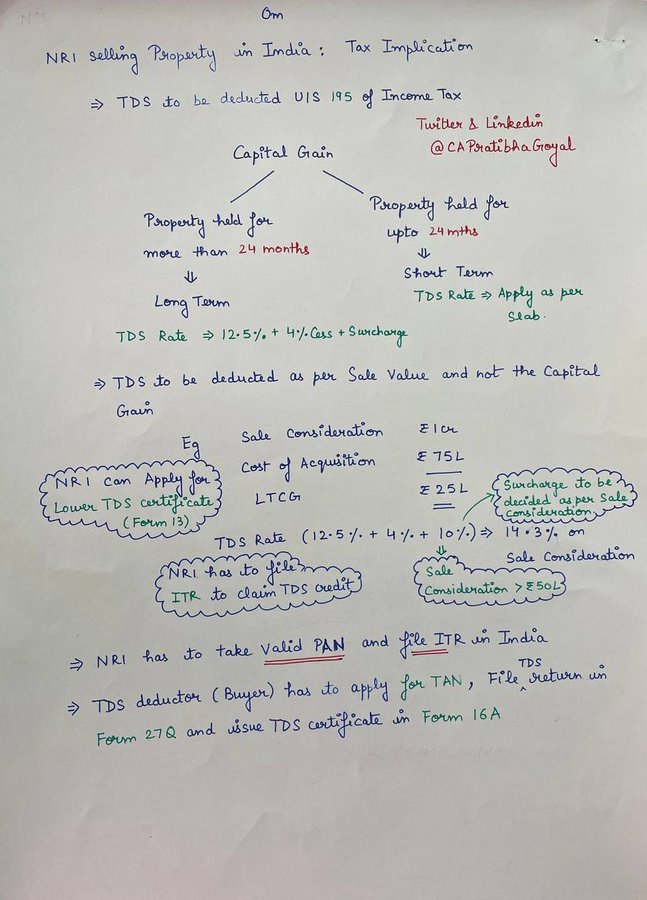 Om
NRI selling Property in India : Tax Implication
⇒ TDS to be deducted U/S 195 of Income Tax
Twitter & Linkedin
@CAPratibhaGoyal
Capital Gain
Property held for
more than 24 months
⇓
Long Term
TDS Rate ⇒ 12.5% + 4% Cess + Surcharge
Property held for
upto 24 mths
⇓
Short Term
TDS Rate ⇒ Apply as per
Slab.
⇒ TDS to be deducted as per Sale Value and not the Capital
Gain
Eg
Sale Consideration ₹1cr
Cost of Acquisition ₹ 75L
LTCG ₹ 25L
NRI can Apply for
Lower TDS certificate
(Form 13)
Surcharge to be
decided as per Sale
consideration
TDS Rate (12.5% + 4% + 10%) ⇒ 14.3% on
Sale Consideration
⇓
Sale
Consideration > ₹50L
NRI has to file
ITR to claim TDS credit
⇒ NRI has to take Valid PAN and file ITR in India
⇒ TDS deductor (Buyer) has to apply for TAN, File TDS return in
Form 27Q and issue TDS certificate in Form 16A